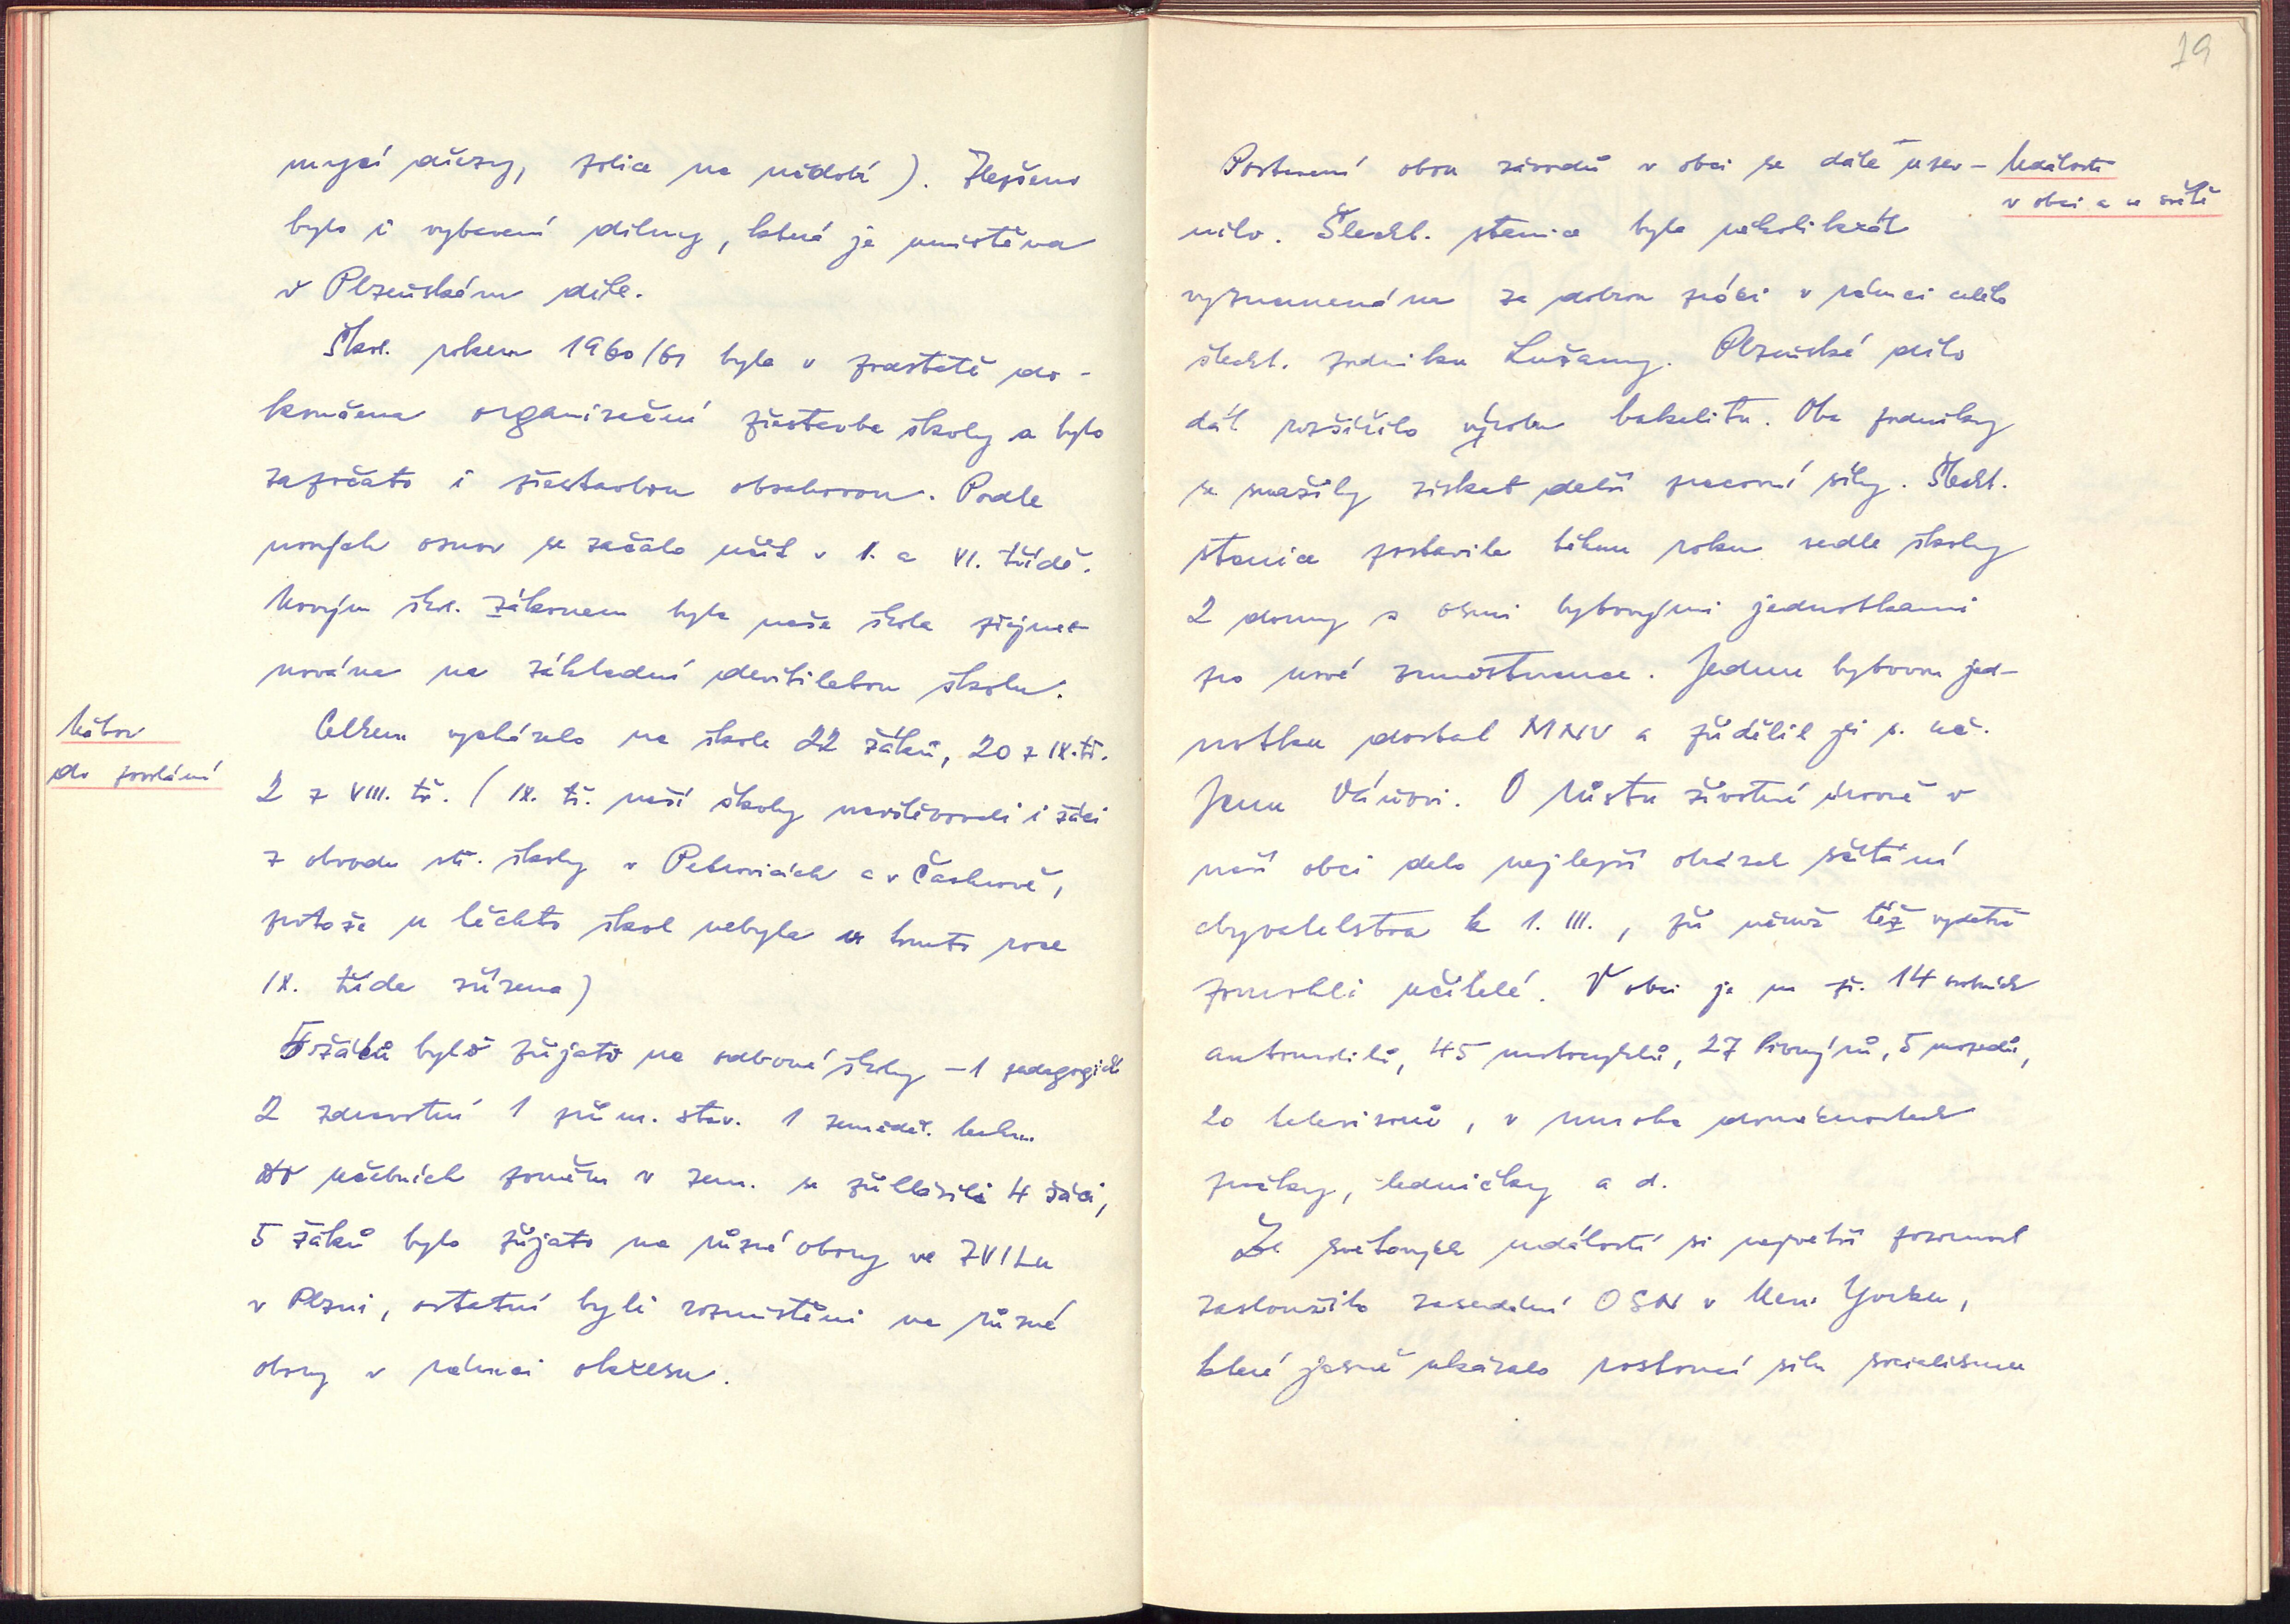 mycí dřezy, police na nádobí). Zlepšeno
bylo i vybavení dílny, která je umístěna
v Plzeňském díle.
Škol. rokem 1960/61 byla v podstatě do-
končena organisační přestavba školy a bylo
započato i přestavbou obsahovou. Podle
nových osnov se začalo učit v I. a VI. třídě.
Novým škol. zákonem byla naše škola přejme-
nována na základní devítiletou školu.
Nábor
do povolání
Celkem vycházelo na škole 22 žáků, 20 z IX. tř.
2 z VIII. tř. (IX. tř. naší školy navštěvovali i žáci
z obvodu stř. školy v Petrovicích a v Čachrově,
protože u těchto škol nebyla v tomto roce
IX. třída zřízena)
5 žáků bylo přijato na odborné školy – 1 pedagogick
2 zdravotní 1 prům. stav. 1 zeměděl. techn.
do učebních poměrů v zem. se přihlásili 4 žáci,
5 žáků bylo přijato na různé obory ve ZVILu
v Plzni, ostatní byli rozmístěni na různé
obory v rámci okresu.
19
Postavení obou závodů v obci se dále upev-
Události
v obci a ve světě
nilo. Šlecht. stanice byla několikrát
vyznamenána za dobrou práci v rámci celého
šlecht. podniku Lužany. Plzeňské dílo
dál rozšířilo výrobu bakelitu. Oba podniky
se snažily získat další pracovní síly. Šlecht.
stanice postavila během roku vedle školy
2 domy s osmi bytovými jednotkami
pro nové zaměstnance. Jednu bytovou jed-
notku dostal MNV a přidělil ji s. uč.
Janu Váňovi. O růstu životní úrovně v
naší obci dalo nejlepší obrázek sčítání
obyvatelstva k 1. III., při němž též vydatně
pomohli učitelé. V obci je na př. 14 osobních
automobilů, 45 motocyklů, 27 Pionýrů, 5 mopedů,
20 televisorů, v mnoha domácnostech
pračky, ledničky a d.
Ze světových událostí si největší pozornost
zasloužilo zasedání OSN v New Yorku,
které jasně ukázalo rostoucí sílu socialismu